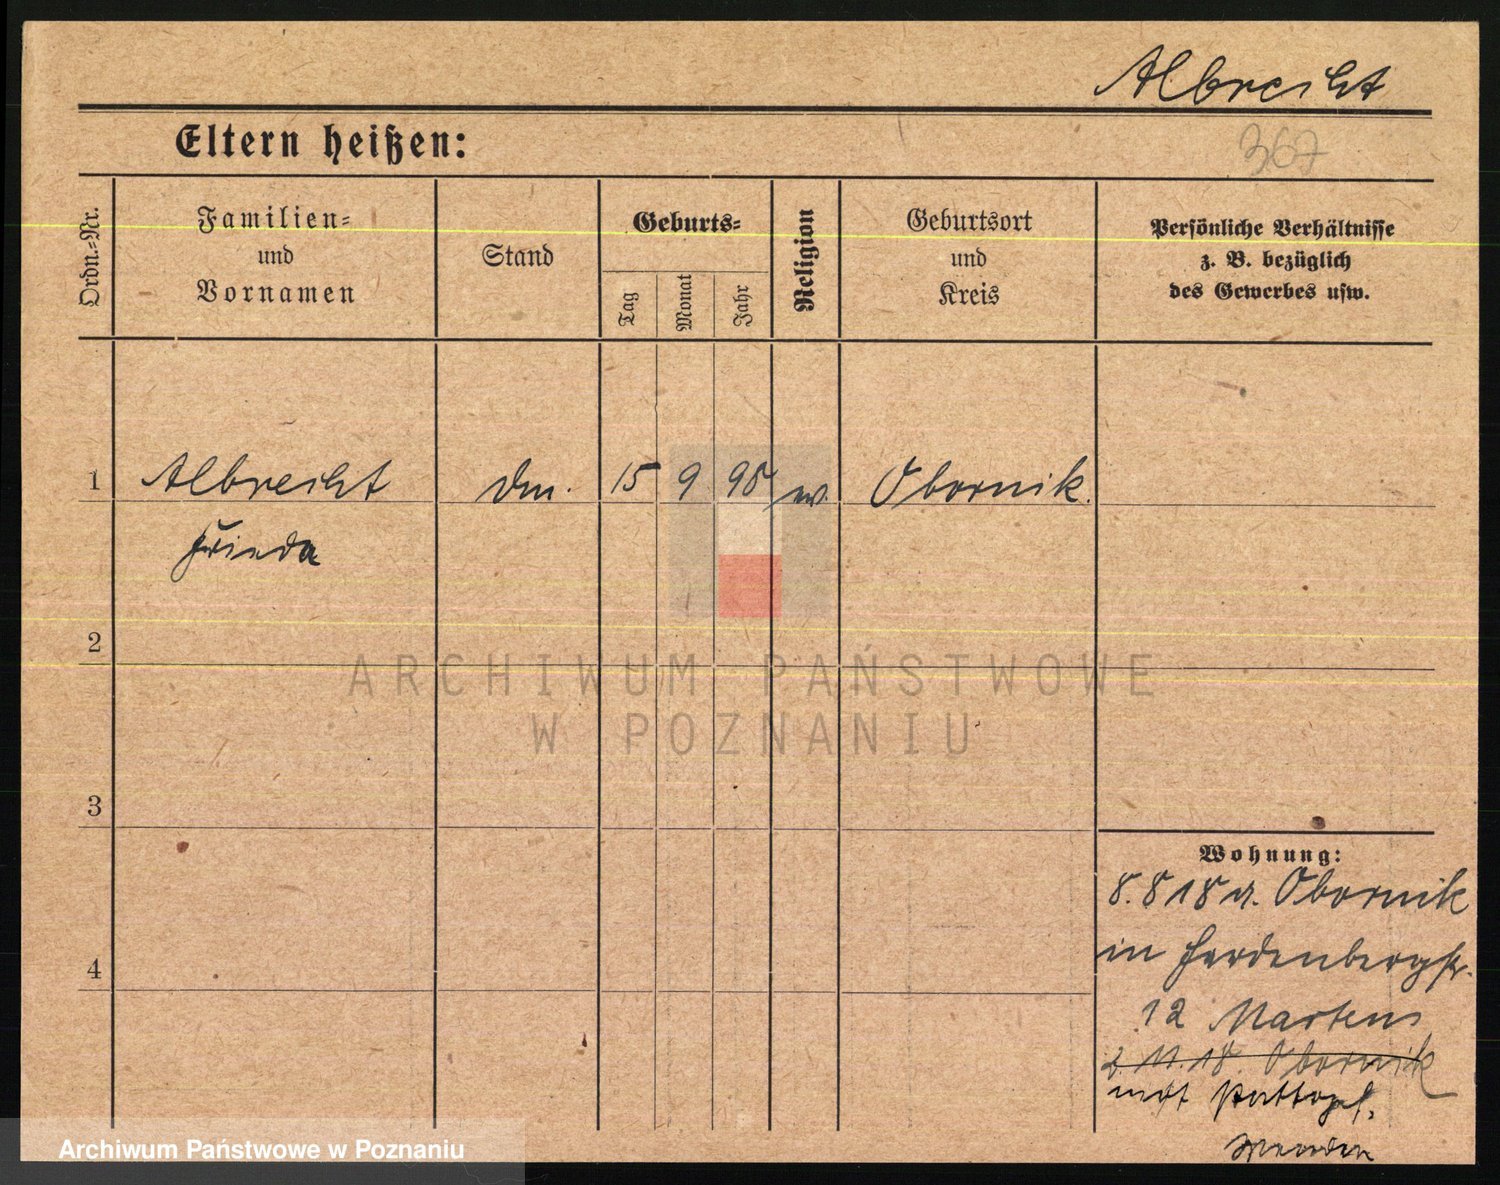 Albrecht
Eltern heißen:
367
Ordn.=Nr.
Familien=
und
Vornamen
Stand
Geburts=
Tag
Monat
Jahr
Religion
Geburtsort
und
Kreis
Persönliche Verhältnisse
z. B. bezüglich
des Gewerbes usw.
1 Albrecht 15 9 98 Obornik
Frieda
2
3
4
Wohnung:
8.8 18 a. Obornik
in Hardenbergstr.
12 Martens
2. 11. 18. Obornik
ARCHIWUM PAŃSTWOWE
W POZNANIU
Archiwum Państwowe w Poznaniu